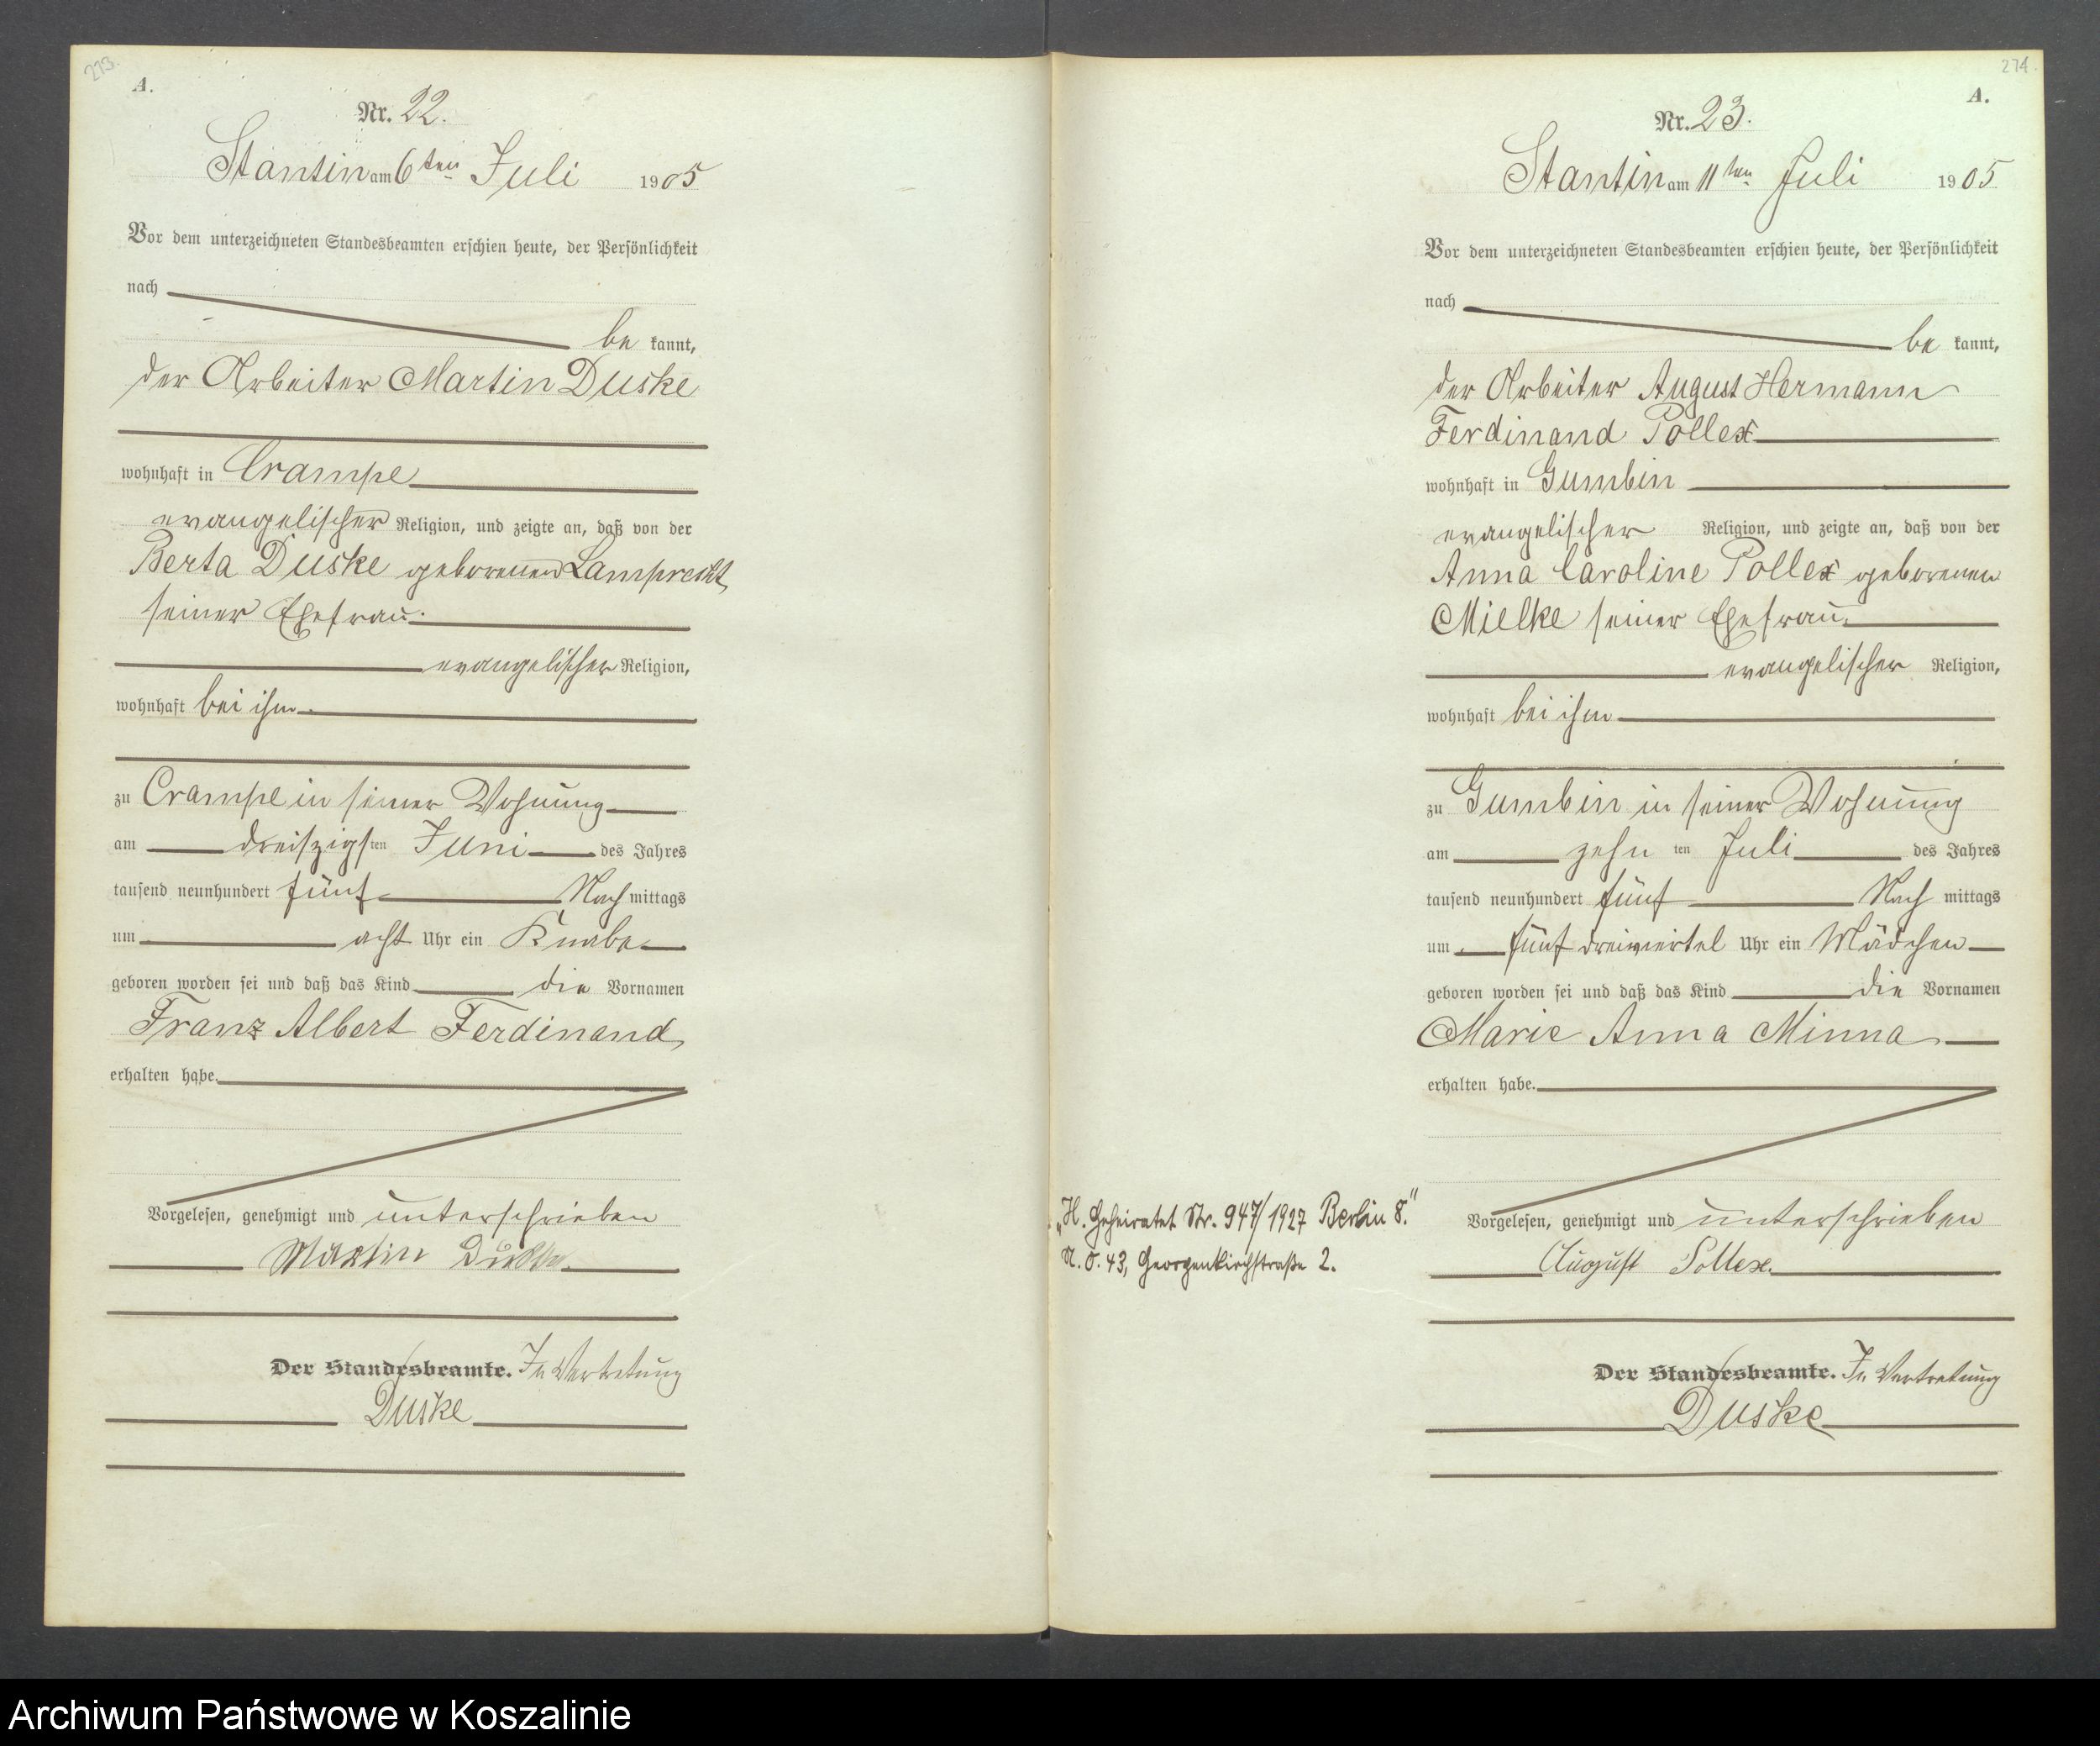 273.
A.
Nr. 22.
Stantin am 6ten Juli 1905
Vor dem unterzeichneten Standesbeamten erschien heute, der Persönlichkeit
nach
bekannt,
der Arbeiter Martin Duske
wohnhaft in Crampe
evangelischer Religion, und zeigte an, daß von der
Berta Duske geborenen Lamprecht,
seiner Ehefrau.
evangelischer Religion,
wohnhaft bei ihm
zu Crampe in seiner Wohnung
am dreiszigsten Juni des Jahres
tausend neunhundert fünf Nachmittags
um acht Uhr ein Knabe
geboren worden sei und daß das Kind die Vornamen
Franz Albert Ferdinand,
erhalten habe.
Vorgelesen, genehmigt und unterschrieben
Martin Duske.
Der Standesbeamte. In Vertretung
Duske
274.
A.
Nr. 23.
Stantin am 11ten Juli 1905
Vor dem unterzeichneten Standesbeamten erschien heute, der Persönlichkeit
nach
bekannt,
der Arbeiter August Hermann
Ferdinand Pollex
wohnhaft in Gumbin
evangelischer Religion, und zeigte an, daß von der
Anna Caroline Pollex geborenen
Mielke seiner Ehefrau,
evangelischer Religion,
wohnhaft bei ihm
zu Gumbin in seiner Wohnung
am zehnten Juli des Jahres
tausend neunhundert fünf Nachmittags
um fünf dreiviertel Uhr ein Mädchen
geboren worden sei und daß das Kind die Vornamen
Marie Anna Minna
erhalten habe.
„H. Geheiratet Nr. 947/1927 Berlin 8."
N. O. 43, Georgenkirchstraße 2.
Vorgelesen, genehmigt und unterschrieben
August Pollex.
Der Standesbeamte. In Vertretung
Duske
Archiwum Państwowe w Koszalinie